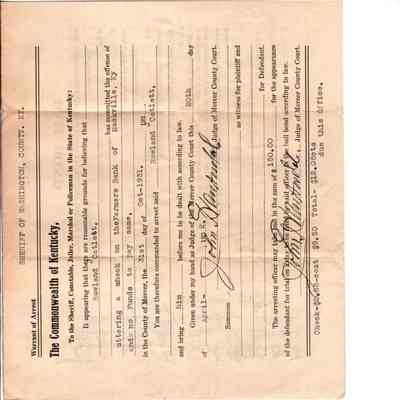 SHERIFF OF WASHINGTON, COUNTY. KY.
Warrant of Arrest
The Commonwealth of Kentucky,
To the Sheriff, Constable, Jailer, Marshal or Policeman in the State of Kentucky:
It appearing that there are reasonable grounds for believing that
Rowland Catlett,
has committed the offense of
uttering a check on the Farmers Bank of Ky
ands no Funds to pay same,
in the County of Mercer, the 31st day of Oct-1931.
You are therefore commanded to arrest said Rowland Catlett,
and bring him before me to be dealt with according to law.
Given under my hand as Judge of the Mercer County Court this 20th day
of April- 193
Judge of Mercer County Court.
Summon as witness for plaintiff and
for Defendant.
The arresting officer may take bail in the sum of $ 150.00 for the appearance
of the defendant for trial
officer if the bail bond according to law.
Judge of Mercer County Court.
Check-$2.55-cost $9.50 Total- $12.05cts
due this Office.